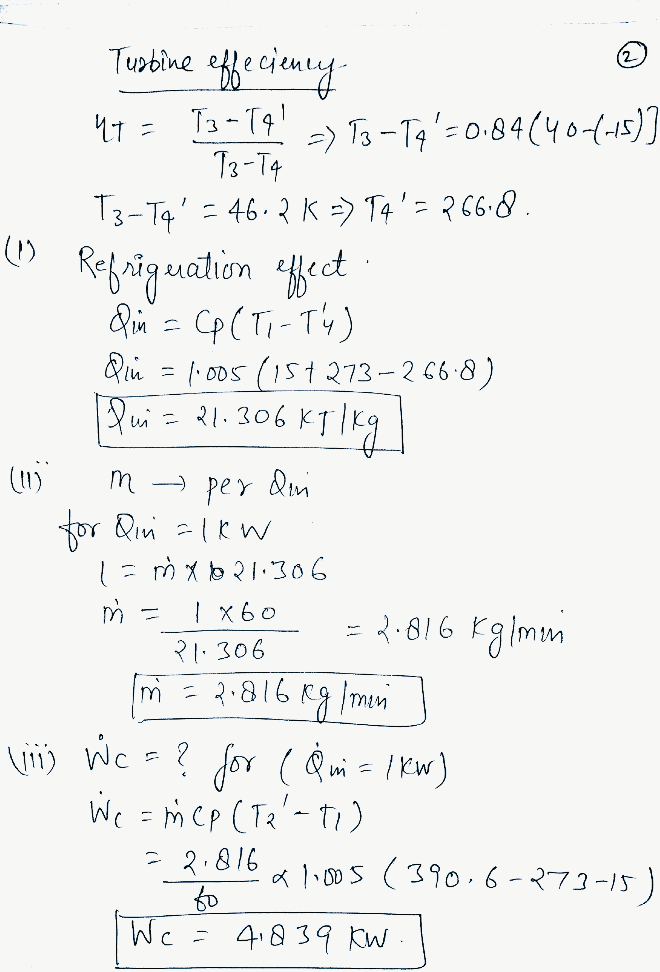 ②
Turbine effeciency
ηT = (T3-T4')/(T3-T4) => T3-T4' = 0.84(40-(-15)]
T3-T4' = 46.2 K => T4' = 266.8.
(1) Refrigeration effect.
Qin = Cp(T1-T'4)
Qin = 1.005 (15+273-266.8)
Qin = 21.306 KJ/kg
(11) m → per Qin
for Qin = 1KW
1 = ṁ x 21.306
ṁ = (1 x60)/(21.306) = 2.816 Kg/min
ṁ = 2.816 kg/min
(iii) Ẇc = ? for (Q̇in = 1KW)
Ẇc = ṁ Cp (T2'-T1)
= 2.816/60 x 1.005 (390.6-273-15)
Wc = 4.839 KW.